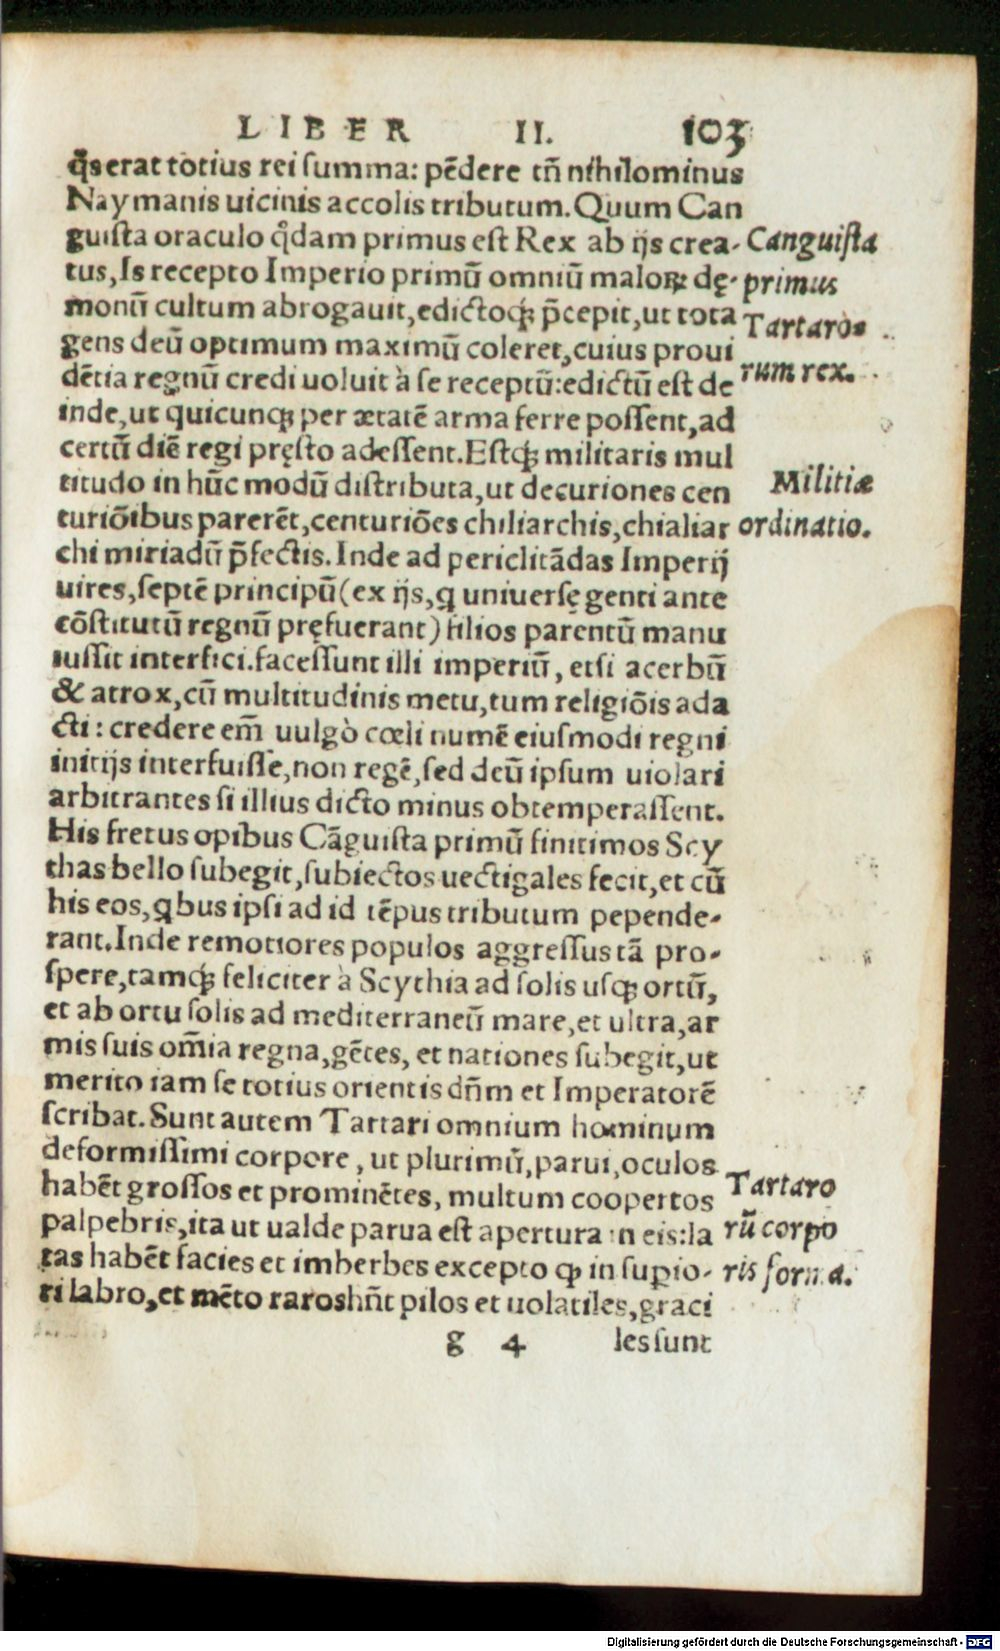 LIBER II. 103
q̄s erat totius rei ſumma: pēdere tn̄ nihilominus
Naymanis uicinis accolis tributum. Quum Can
guiſta oraculo qͦdam primus eſt Rex ab ijs crea-
tus, Is recepto Imperio primū omniū maloꝝ dę-
monū cultum abrogauit, edictoq́ꝫ p̄cepit, ut tota
gens deū optimum maximū coleret, cuius proui
dētia regnū credi uoluit à ſe receptū: edictū eſt de
inde, ut quicunqꝫ per ætatē arma ferre poſſent, ad
certū diē regi pręſto adeſſent. Eſtq́ꝫ militaris mul
titudo in hūc modū diſtributa, ut decuriones cen
turiōibus parerēt, centuriōes chiliarchis, chialiar
chi miriadū p̄fectis. Inde ad periclitādas Imperij
uires, ſeptē principū (ex ijs, ꝗ uniuerſę genti ante
cōſtitutū regnū pręfuerant) filios parentū manu
iuſſit interfici. faceſſunt illi imperiū, etſi acerbū
& atrox, cū multitudinis metu, tum religiōis ada
cti: credere em̄ uulgò cœli numē eiuſmodi regni
initijs interfuiſſe, non regē, ſed deū ipſum uiolari
arbitrantes ſi illius dicto minus obtemperaſſent.
His fretus opibus Cāguiſta primū finitimos Scy
thas bello ſubegit, ſubiectos uectigales fecit, et cū
his eos, ꝗbus ipſi ad id tēpus tributum pepende-
rant. Inde remotiores populos aggreſſus tā pro-
ſpere, tamq́ꝫ feliciter à Scythia ad ſolis uſqꝫ ortū,
et ab ortu ſolis ad mediterraneū mare, et ultra, ar
mis ſuis om̄ia regna, gētes, et nationes ſubegit, ut
merito iam ſe totius orientis dn̄m et Imperatorē
ſcribat. Sunt autem Tartari omnium hominum
deformiſſimi corpore, ut plurimū, parui, oculos
habēt groſſos et prominētes, multum coopertos
palpebris, ita ut ualde parua eſt apertura in eis: la
tas habēt facies et imberbes excepto ꝙ in ſuꝑio-
ri labro, et mēto raros hn̄t pilos et uolatiles, graci
g 4 les ſunt
Canguiſta
primus
Tartaro-
rum rex.
Militiæ
ordinatio.
Tartaro
rū corpo
ris forma.
Digitalisierung gefördert durch die Deutsche Forschungsgemeinschaft - DFG